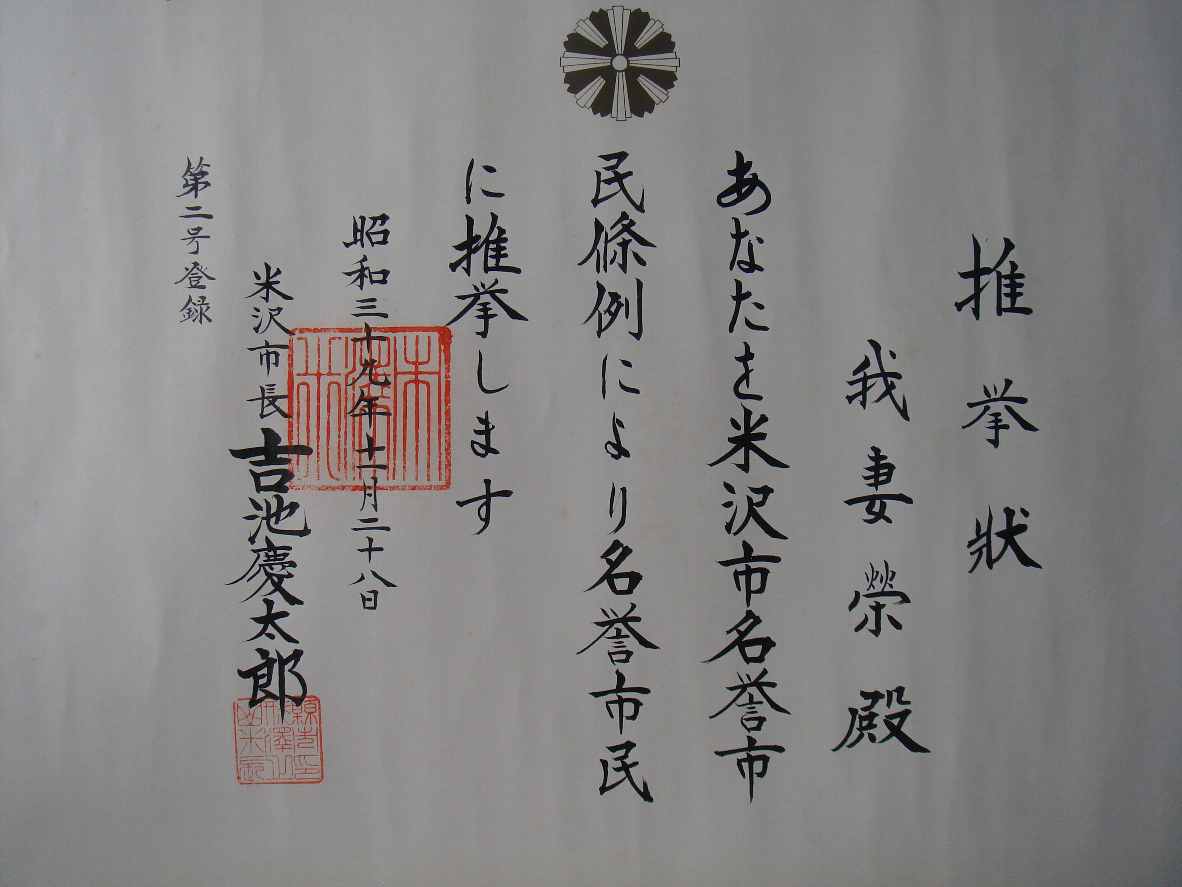 推挙狀
我妻榮殿
あなたを米沢市名誉市
民條例により名誉市民
に推挙します
昭和三十九年十一月二十八日
米沢市長 吉池慶太郎
第二号登録